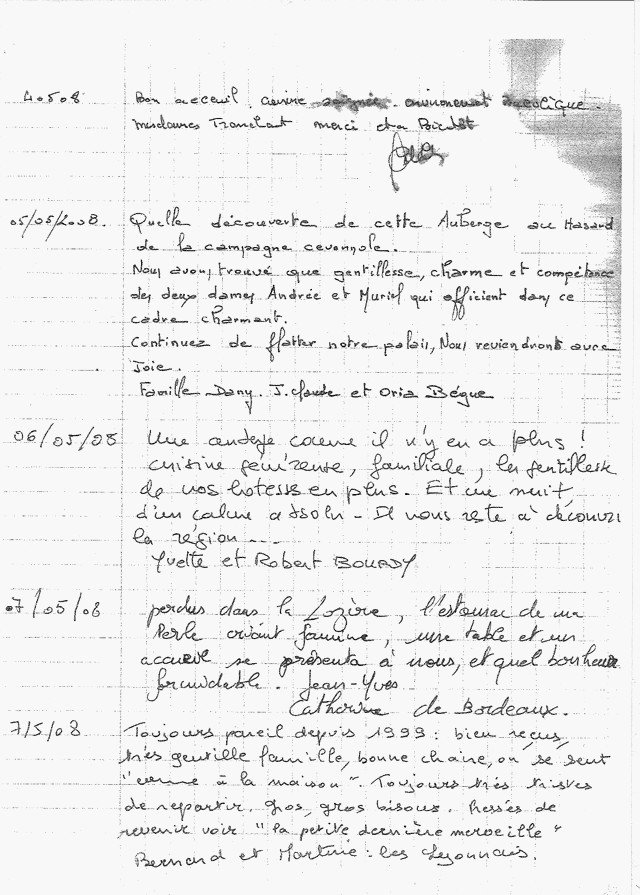 40508 Bon acceuil. cuisine soignée. environement idealique.
mesdames Tranchant merci
05/05/2008. Quelle découverte de cette Auberge au Hasard
de la campagne cevennole.
Nous avons trouvé que gentillesse, charme et compétence
des deux dames Andrée et Muriel qui officient dans ce
cadre charmant.
Continuez de flatter notre palais, Nous reviendrons avec
Joie.
Famille Dany. J.claude et Oria Bégue
06/05/08 Une auberge comme il n'y en a plus !
cuisine généreuse, familiale, la gentillesse
de nos hotesses en plus. Et une nuit
d'un calme absolu - Il nous reste à découvrir
la région ---
Yvette et Robert BOURDY
07/05/08 perdus dans la Lozère, l'estomac de ma
Perle criant famine, une table et un
accueil se présenta à nous, et quel bonheur
formidable. Jean-Yves
Catherine de Bordeaux.
7/5/08 Toujours pareil depuis 1999 : bien reçus,
très gentille famille, bonne chaire, on se sent
"comme à la maison". Toujours très tristes
de repartir. Gros, gros bisous. Pressés de
revenir voir "la petite dernière merveille"
Bernard et Martine : les Lyonnais.